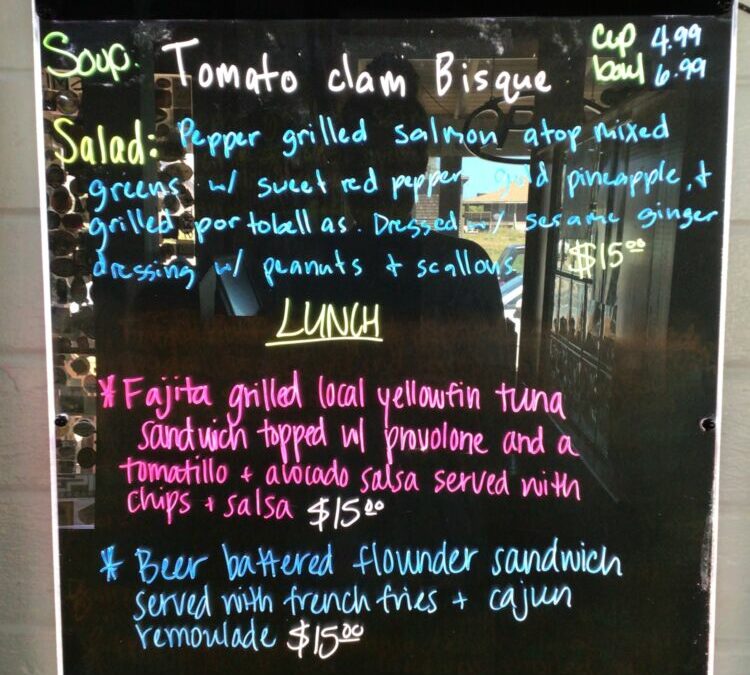 Soup. Tomato clam Bisque cup 4.99
bowl 6.99
Salad: Pepper grilled salmon atop mixed
greens w/ sweet red pepper, gold pineapple, +
grilled portobellas. Dressed w/ sesame ginger
dressing w/ peanuts + scallous $15.00
LUNCH
* Fajita grilled local yellowfin tuna
sandwich topped w/ provolone and a
tomatillo + avocado salsa served with
chips + salsa $15.00
* Beer battered flounder sandwich
served with french fries + cajun
remoulade $15.00